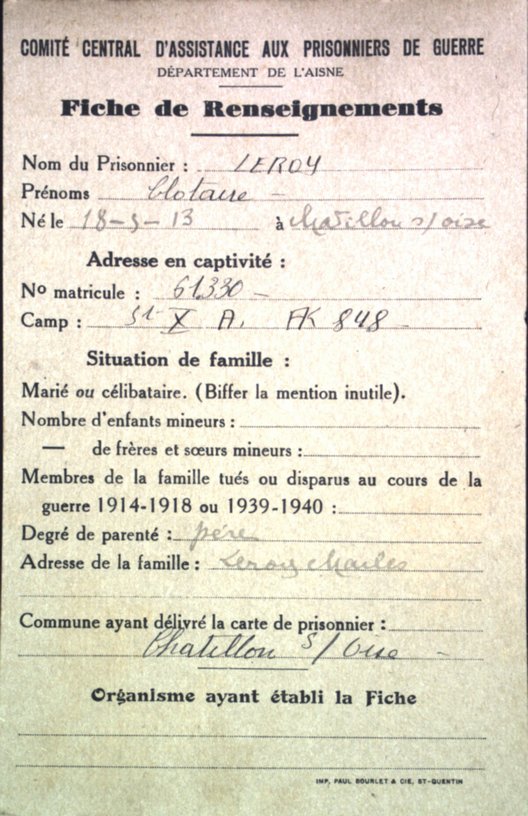 COMITÉ CENTRAL D'ASSISTANCE AUX PRISONNIERS DE GUERRE
DÉPARTEMENT DE L'AISNE
Fiche de Renseignements
Nom du Prisonnier : LEROY
Prénoms Clotaire -
Né le 18-9-13 à Chatillon s/oise
Adresse en captivité :
No matricule : 61.330 -
Camp : St X A. AK 848 -
Situation de famille :
Marié ou célibataire. (Biffer la mention inutile).
Nombre d'enfants mineurs :
— de frères et sœurs mineurs :
Membres de la famille tués ou disparus au cours de la
guerre 1914-1918 ou 1939-1940 :
Degré de parenté : père
Adresse de la famille : Leroy Charles
Commune ayant délivré la carte de prisonnier :
Chatillon s/ Oise -
Organisme ayant établi la Fiche
IMP. PAUL BOURLET & CIE, ST-QUENTIN